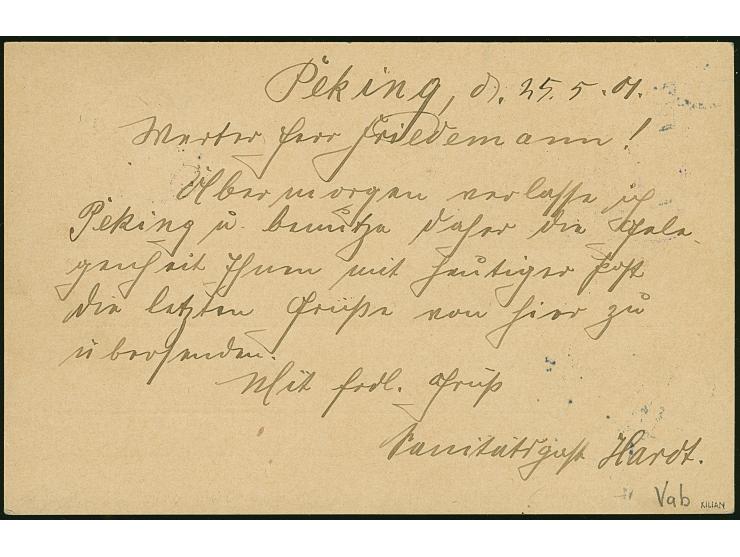 Peking, d. 25.5.01.
Werter Herr Friedemann!
Übermorgen verlasse ich
Peking u. benutze daher die Gele-
genheit Ihnen mit heutiger Post
die letzten Grüße von hier zu
übersenden.
Mit frdl. Gruß
Hardt.
Vab KILIAN